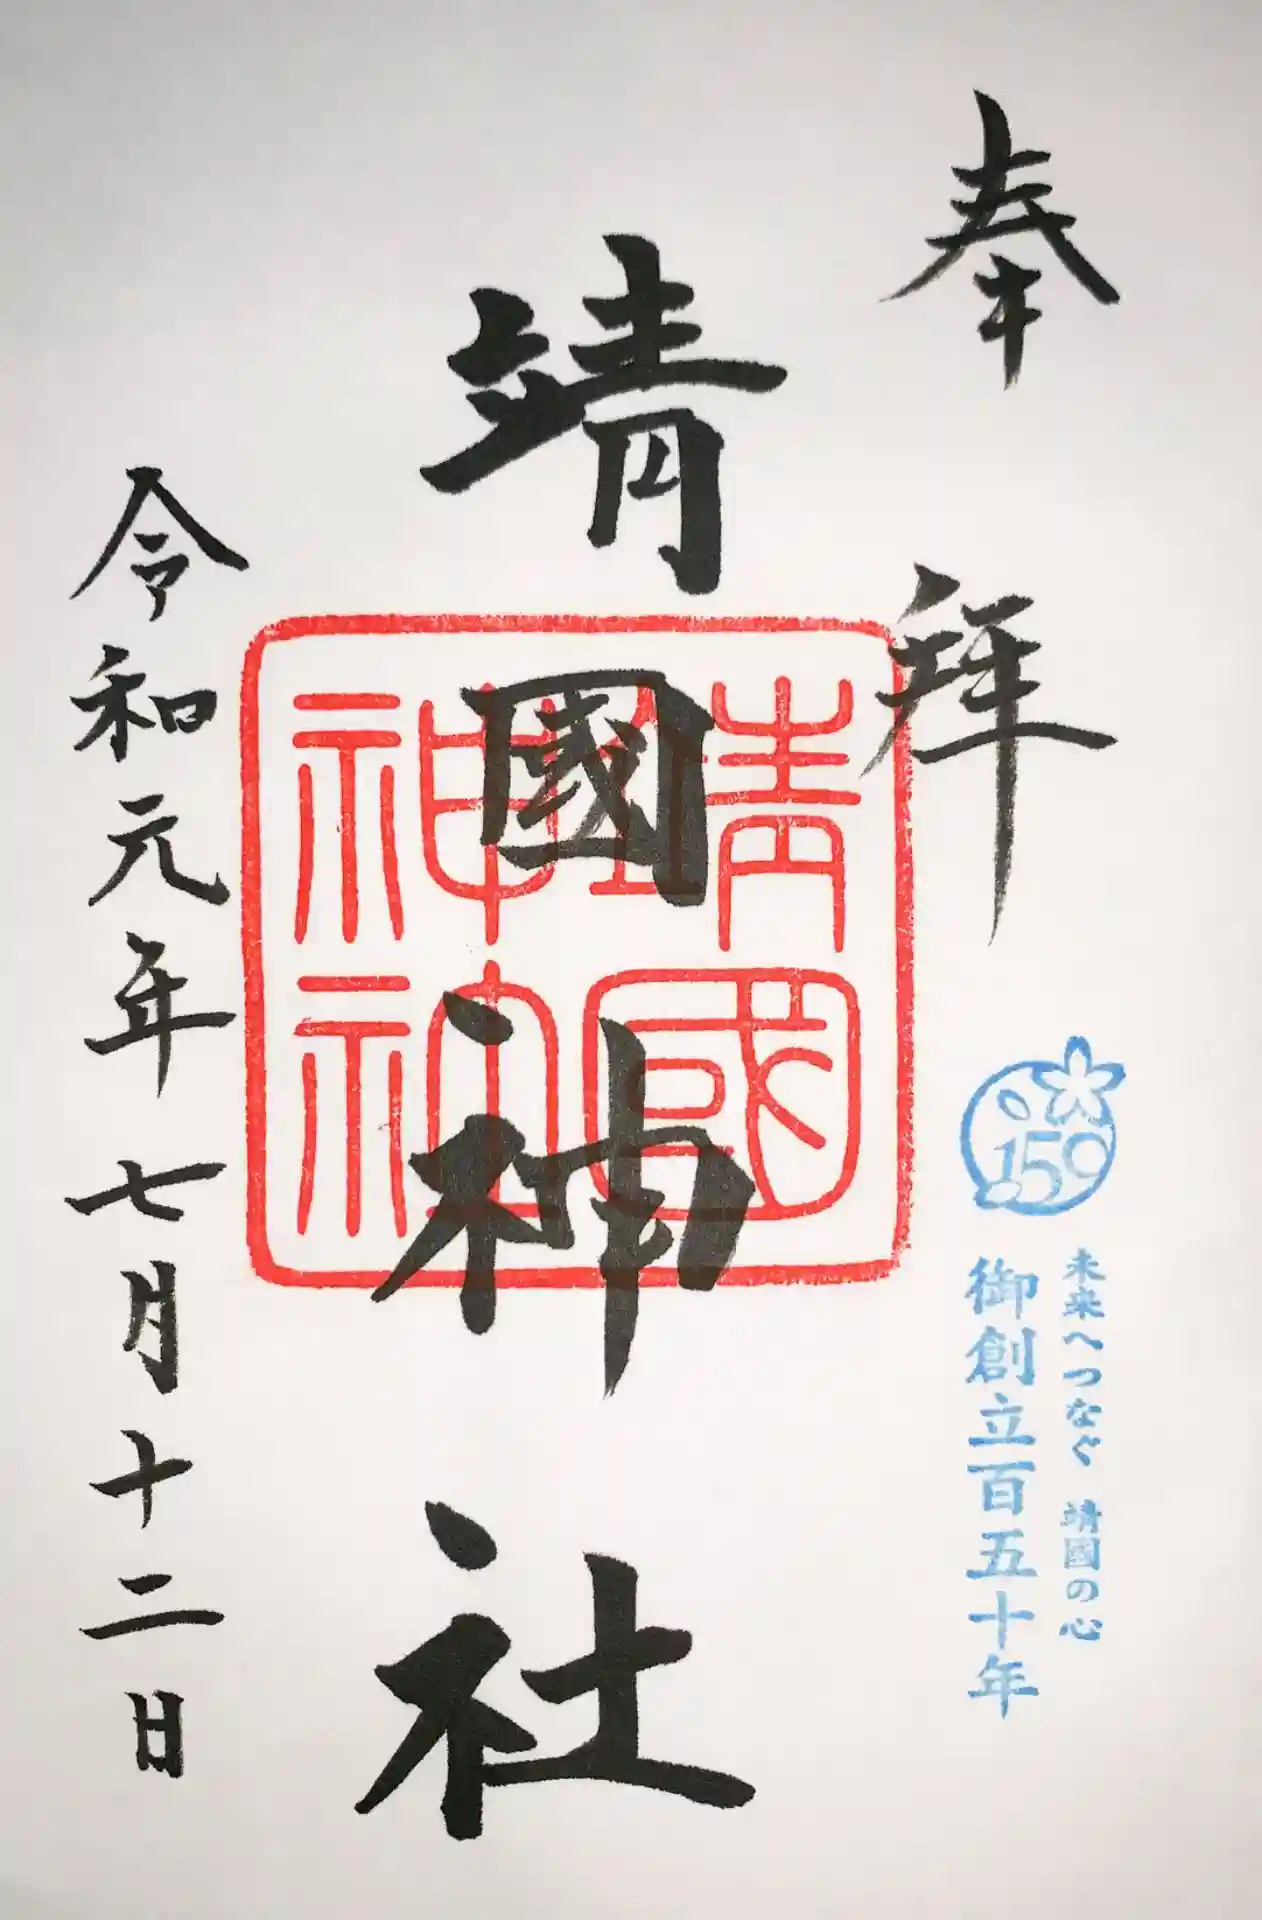 奉拝
150
未来へつなぐ 靖國の心
御創立百五十年
靖國神社
靖國
神社
令和元年七月十二日